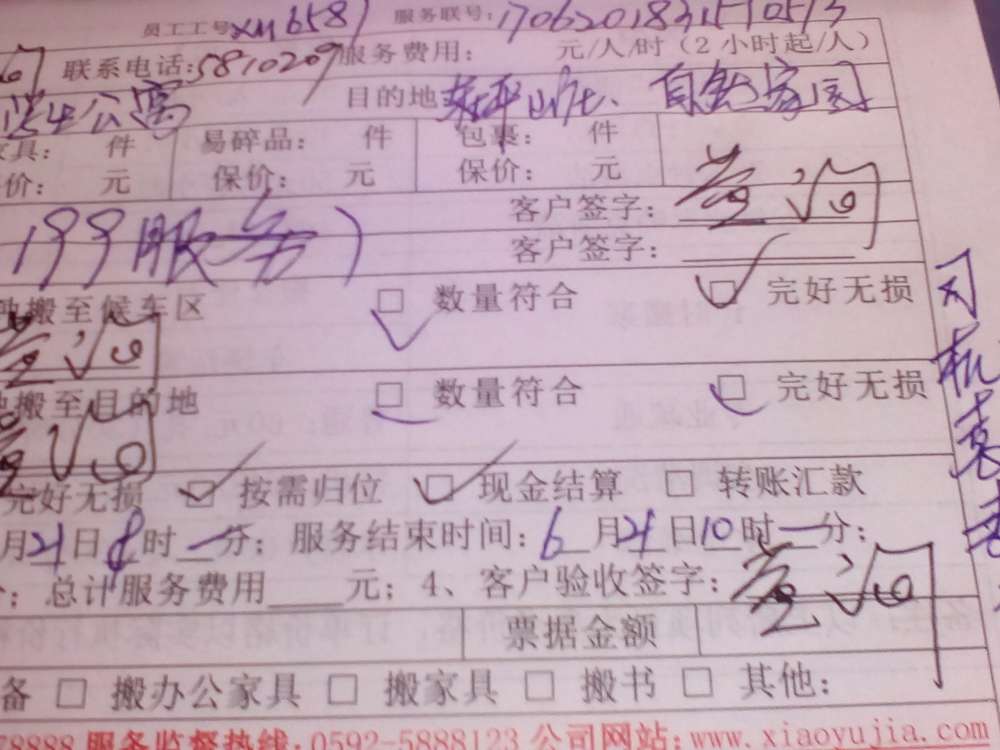 员工工号: xm658 服务联号: 1706201831510513
联系电话:5810209 服务费用: 元/人/时（2小时起/人）
学生公寓 目的地 自然家园
件 易碎品: 件 包裹: 件
价: 元 保价: 元 保价: 元
199服务） 客户签字:
客户签字:
搬至候车区 □ 数量符合 □ 完好无损
司机
搬至目的地 □ 数量符合 □ 完好无损
完好无损 □ 按需归位 □ 现金结算 □ 转账汇款
月21日8时一分; 服务结束时间: 6月21日10时一分;
总计服务费用____元; 4、客户验收签字:
票据金额
备 □ 搬办公家具 □ 搬家具 □ 搬书 □ 其他:
78888 服务监督热线: 0592-5888123 公司网站: www.xiaoyujia.com